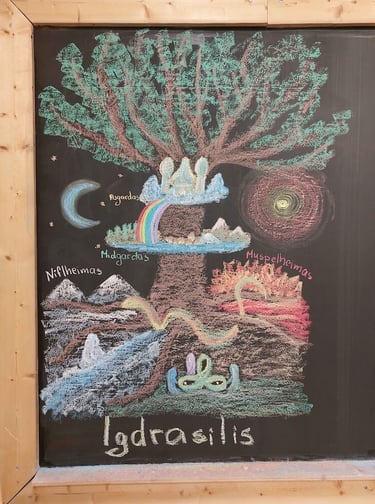 Asgardas
Midgardas
Niflheimas
Muspelheimas
Igdrasilis